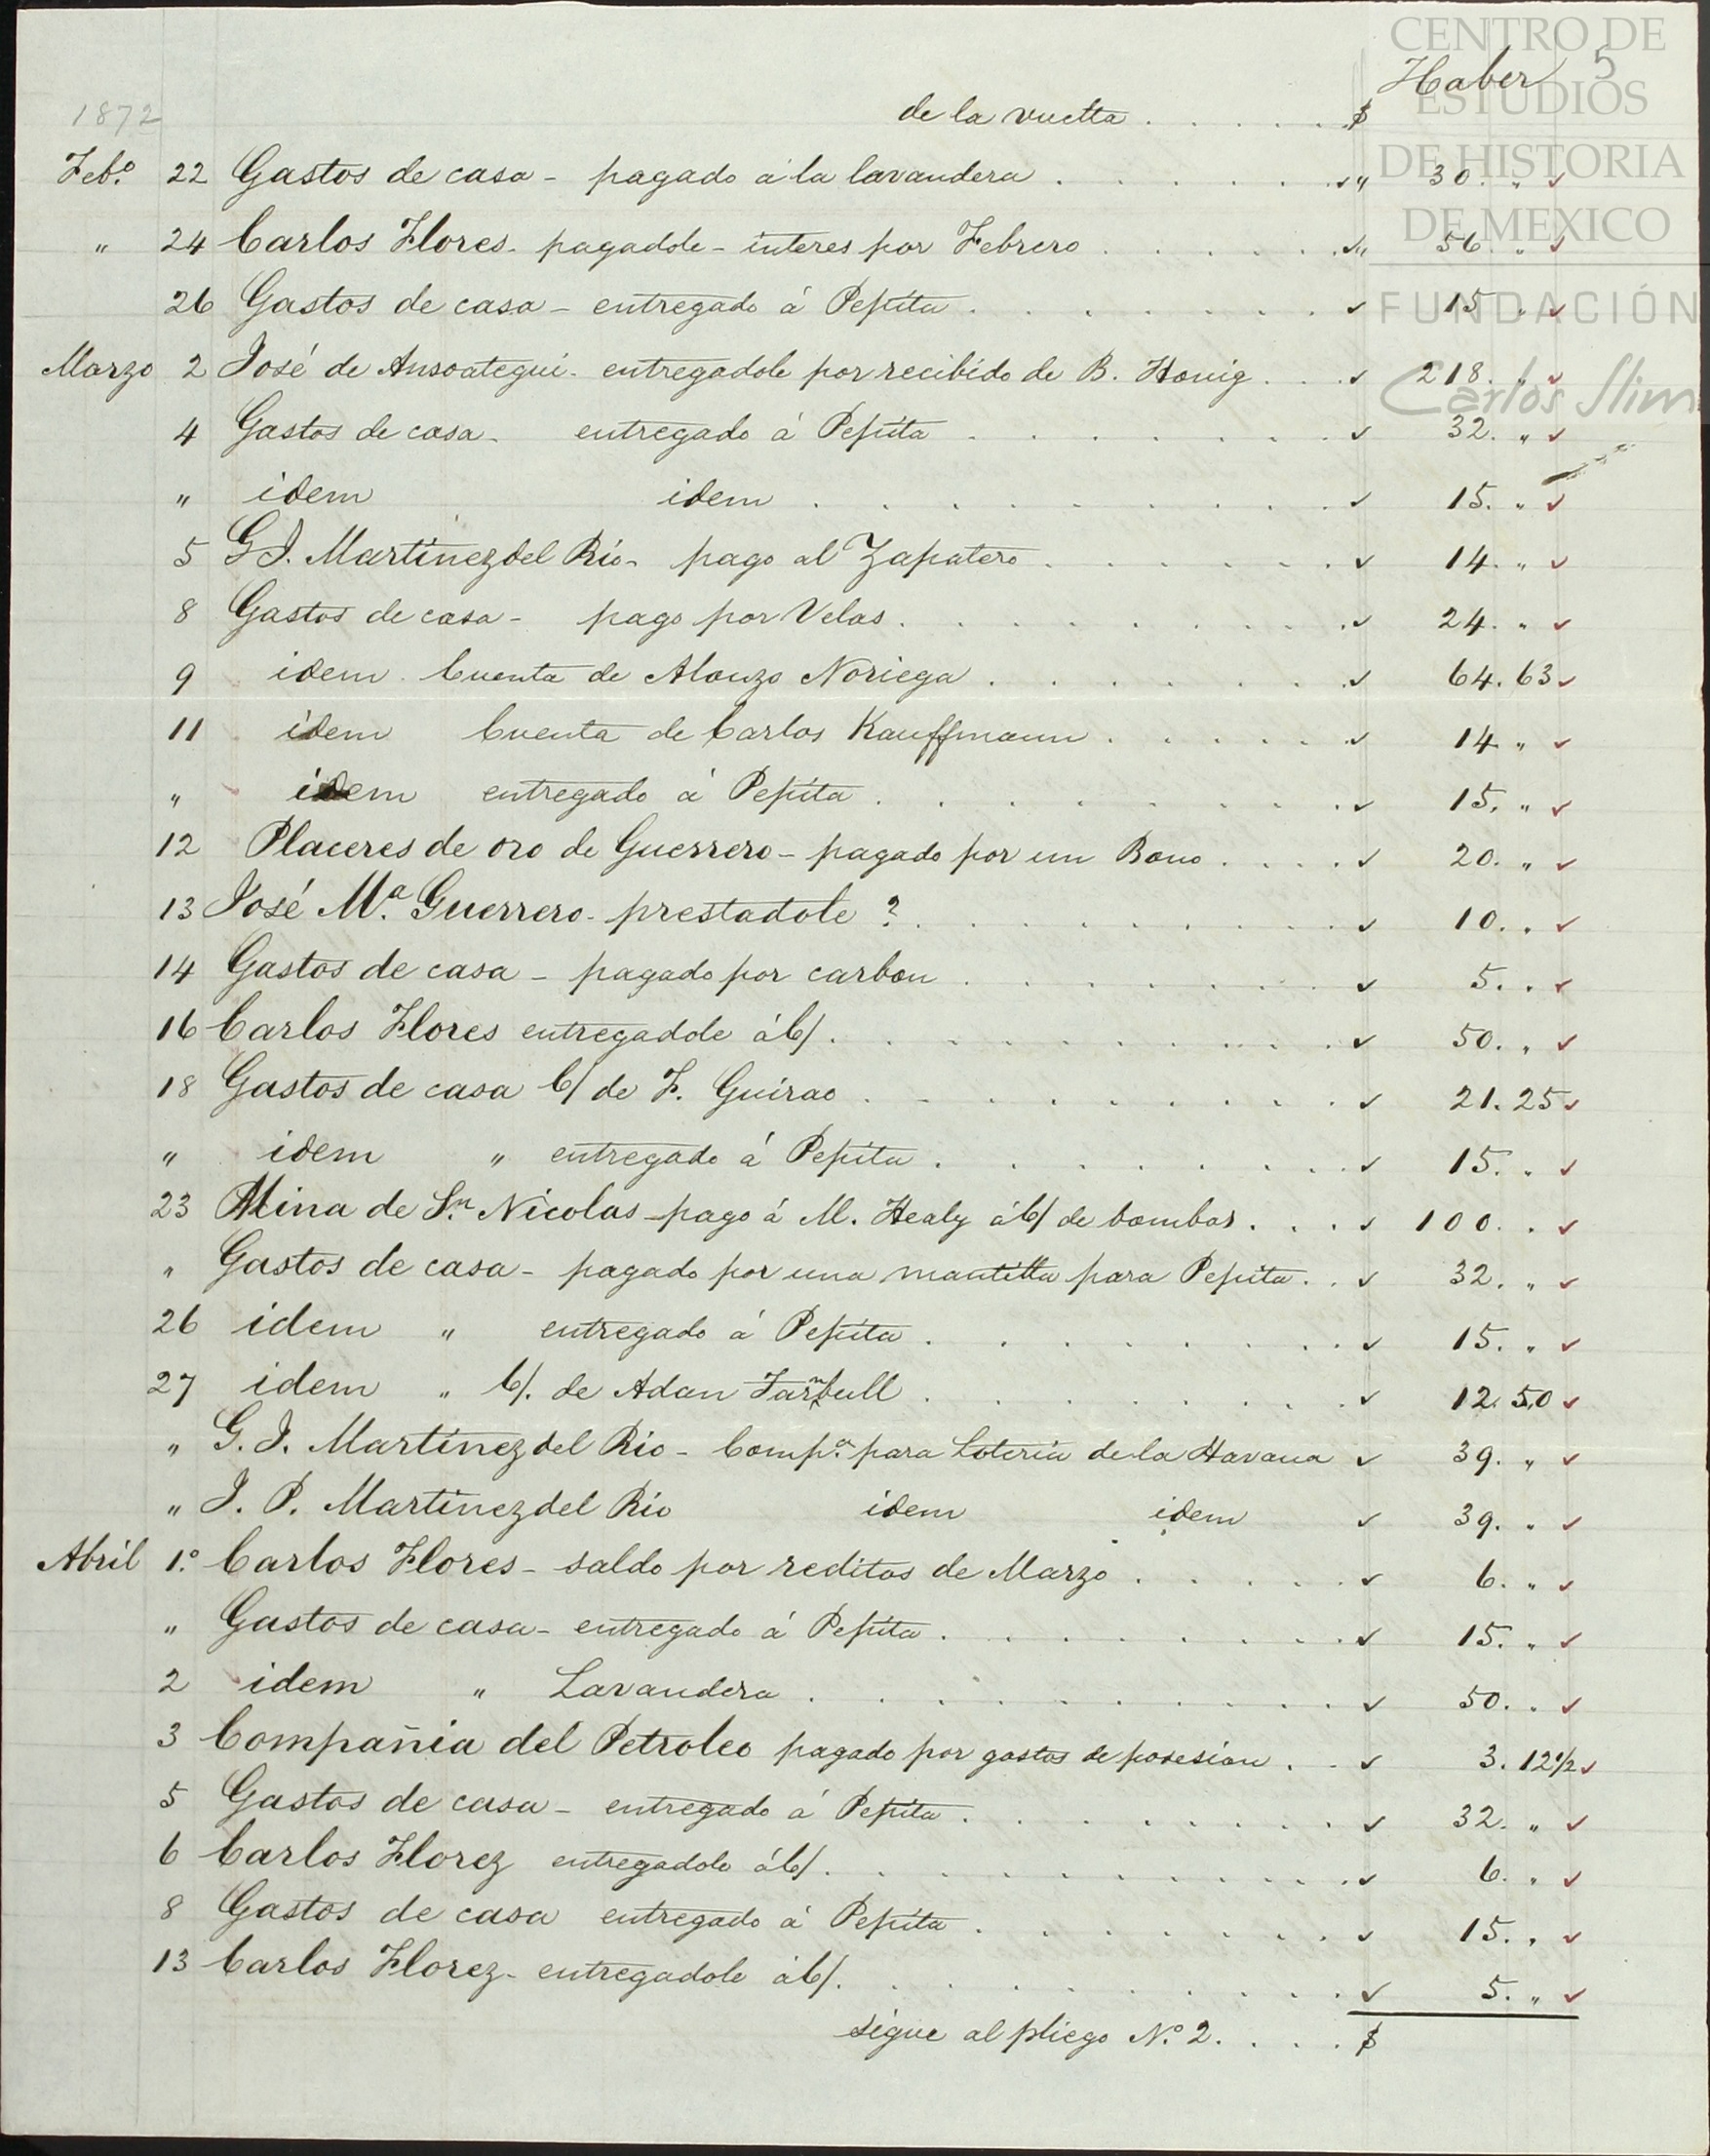 CENTRO DE
ESTUDIOS
DE HISTORIA
DE MEXICO
FUNDACIÓN
Carlos Slim
Haber 5
1872 de la vuelta . . . . . $
Feb.o 22 Gastos de casa - pagado á la lavandera . . . . . . " 30. "
" 24 Carlos Flores - pagadole - interes por Febrero . . . . . " 56. "
26 Gastos de casa - entregado á Pepita . . . . . . . 15 "
Marzo 2 José de Ansoategui - entregadole por recibido de B. Honig . . . 218. "
4 Gastos de casa - entregado á Pepita . . . . . . . 32. "
" idem idem . . . . . . . . . 15. "
5 G J. Martinez del Rio - pago al Zapatero . . . . . . 14. "
8 Gastos de casa - pago por Velas . . . . . . . . 24. "
9 idem Cuenta de Alonzo Noriega . . . . . . . 64. 63
11 idem Cuenta de Carlos Kauffmann . . . . . 14 "
" idem entregado á Pepita . . . . . . . . 15. "
12 Placeres de oro de Guerrero - pagado por un Bono . . . . 20. "
13 José M.a Guerrero - prestadole ? . . . . . . . . 10. "
14 Gastos de casa - pagado por carbon . . . . . . . 5. "
16 Carlos Flores entregadole á C/ . . . . . . . . . 50. "
18 Gastos de casa C/ de F. Guirao . . . . . . . . 21. 25
" idem " entregado á Pepita . . . . . . . 15. "
23 Mina de S.n Nicolas - pago á M. Healy á C/ de bombas . . . 100. "
" Gastos de casa - pagado por una mantilla para Pepita . . 32. "
26 idem " entregado á Pepita . . . . . . . 15. "
27 idem " C/. de Adan . . . . . . . 12. 50
" G. J. Martinez del Rio - Comp.a para Loteria de la Havana 39. "
" J. P. Martinez del Rio idem idem 39. "
Abril 1.o Carlos Flores - saldo por reditos de Marzo . . . . . 6. "
" Gastos de casa - entregado á Pepita . . . . . . . 15. "
2 idem " Lavandera . . . . . . . . . 50. "
3 Compañia del Petroleo pagado por gastos de posesion . . 3. 12 1/2
5 Gastos de casa - entregado á Pepita . . . . . . . 32. "
6 Carlos Florez entregadole á C/ . . . . . . . . . 6. "
8 Gastos de casa entregado á Pepita . . . . . . . 15. "
13 Carlos Florez - entregadole á C/. . . . . . . . . 5. "
sigue al pliego N.o 2. . . . . $